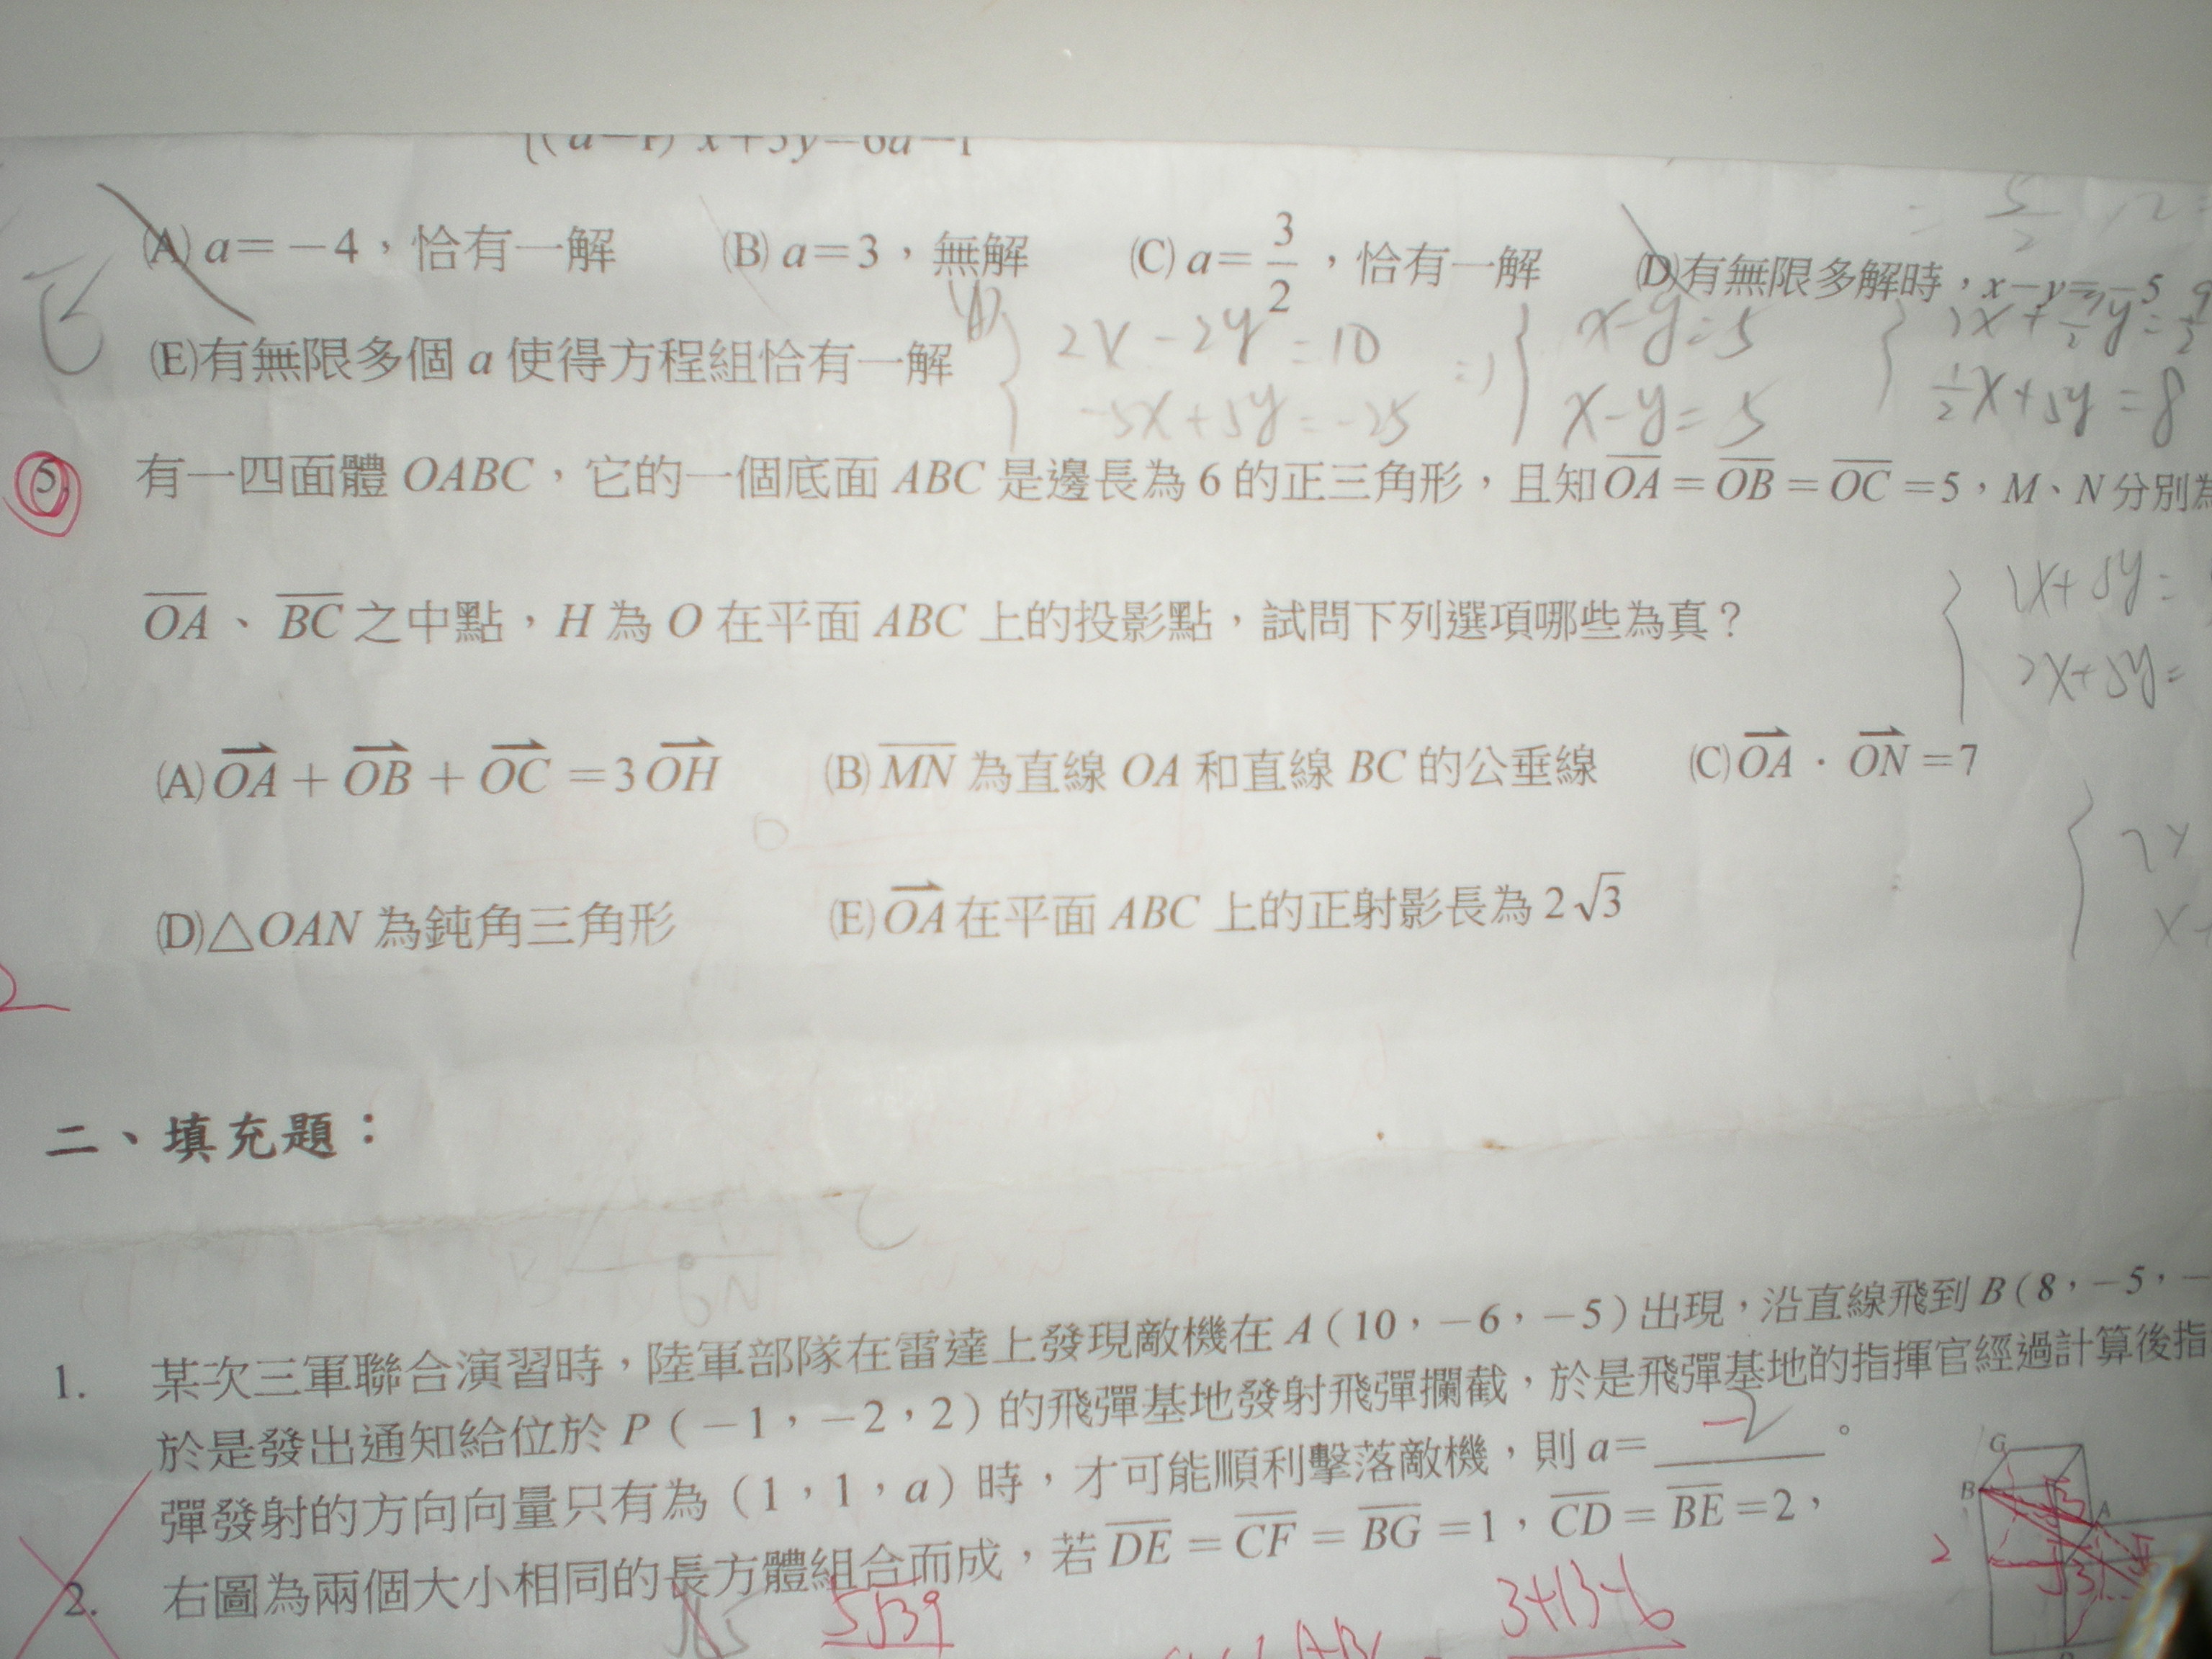 (a−1) x+5y=6a−1
(A) a=−4,恰有一解 (B) a=3,無解 (C) a=3/2,恰有一解 (D)有無限多解時,x−y=−5
(E)有無限多個 a 使得方程組恰有一解
2x−2y=10
−5x+5y=−25
x−y=5
x−y=5
1/2x+5y=8
5. 有一四面體 OABC,它的一個底面 ABC 是邊長為 6 的正三角形,且知 OA = OB = OC =5,M、N 分別為
OA、BC 之中點,H 為 O 在平面 ABC 上的投影點,試問下列選項哪些為真?
2x+5y=
(A) OA + OB + OC =3 OH (B) MN 為直線 OA 和直線 BC 的公垂線 (C) OA · ON =7
(D)△OAN 為鈍角三角形 (E) OA 在平面 ABC 上的正射影長為 2√3
二、填充題:
1. 某次三軍聯合演習時,陸軍部隊在雷達上發現敵機在 A(10,−6,−5)出現,沿直線飛到 B(8,−5,−
於是發出通知給位於 P(−1,−2,2)的飛彈基地發射飛彈攔截,於是飛彈基地的指揮官經過計算後指
彈發射的方向向量只有為(1,1,a)時,才可能順利擊落敵機,則 a= −2 。
2. 右圖為兩個大小相同的長方體組合而成,若 DE = CF = BG =1,CD = BE =2,
G
B
A
2
5√39
3+13−6